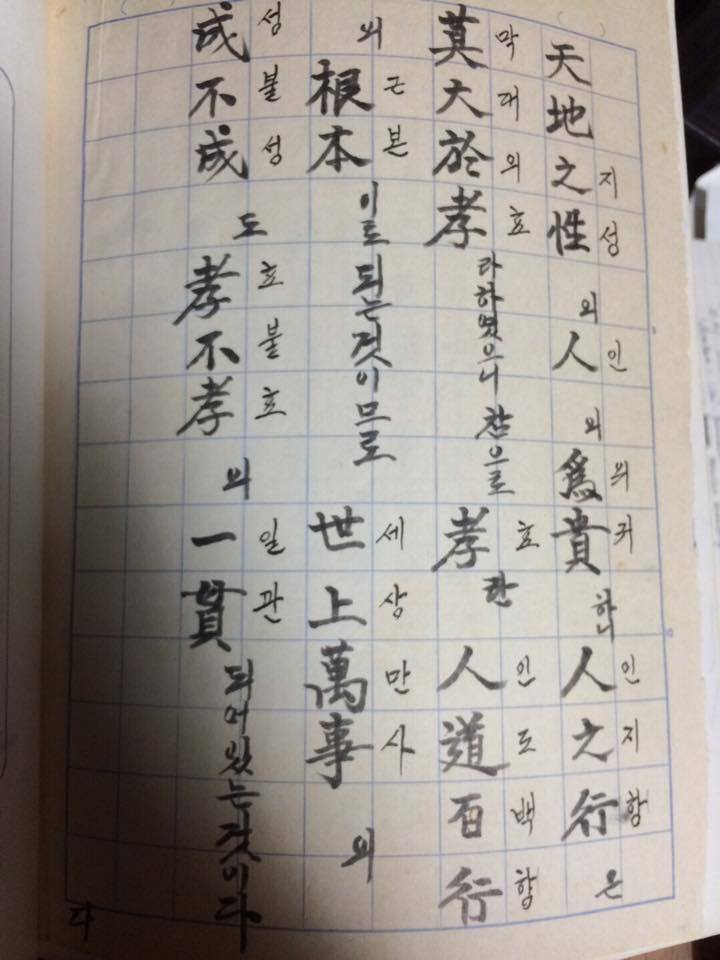 天地之性의人의爲貴하니人之行은
지성 인 위귀 인지항
莫大於孝라하였으니 참으로 孝란 人道百行
막대의효 효 인도백항
의 根本이 되는것이므로 世上萬事의
근본 세상만사
成不成도 孝不孝의 一貫되어있는것이다
성불성 효불효 일관
다